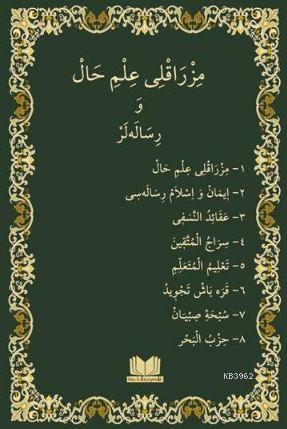 مِزْرَاقْلِى عِلْمِ حَالْ
وَ
رِسَالَهلَرْ
١- مِزْرَاقْلِى عِلْمِ حَالْ
٢- إِيمَانْ وَ إِسْلَامْ رِسَالَهسِى
٣- عَقَائِدُ النَّسَفِى
٤- سِرَاجُ الْمُتَّقِينَ
٥- تَعْلِيمُ الْمُتَعَلِّمِ
٦- قَرَه بَاشْ تَجْوِيدْ
٧- سُبْحَةِ صِبْيَانْ
٨- حِزْبُ الْبَحْر
KB3962